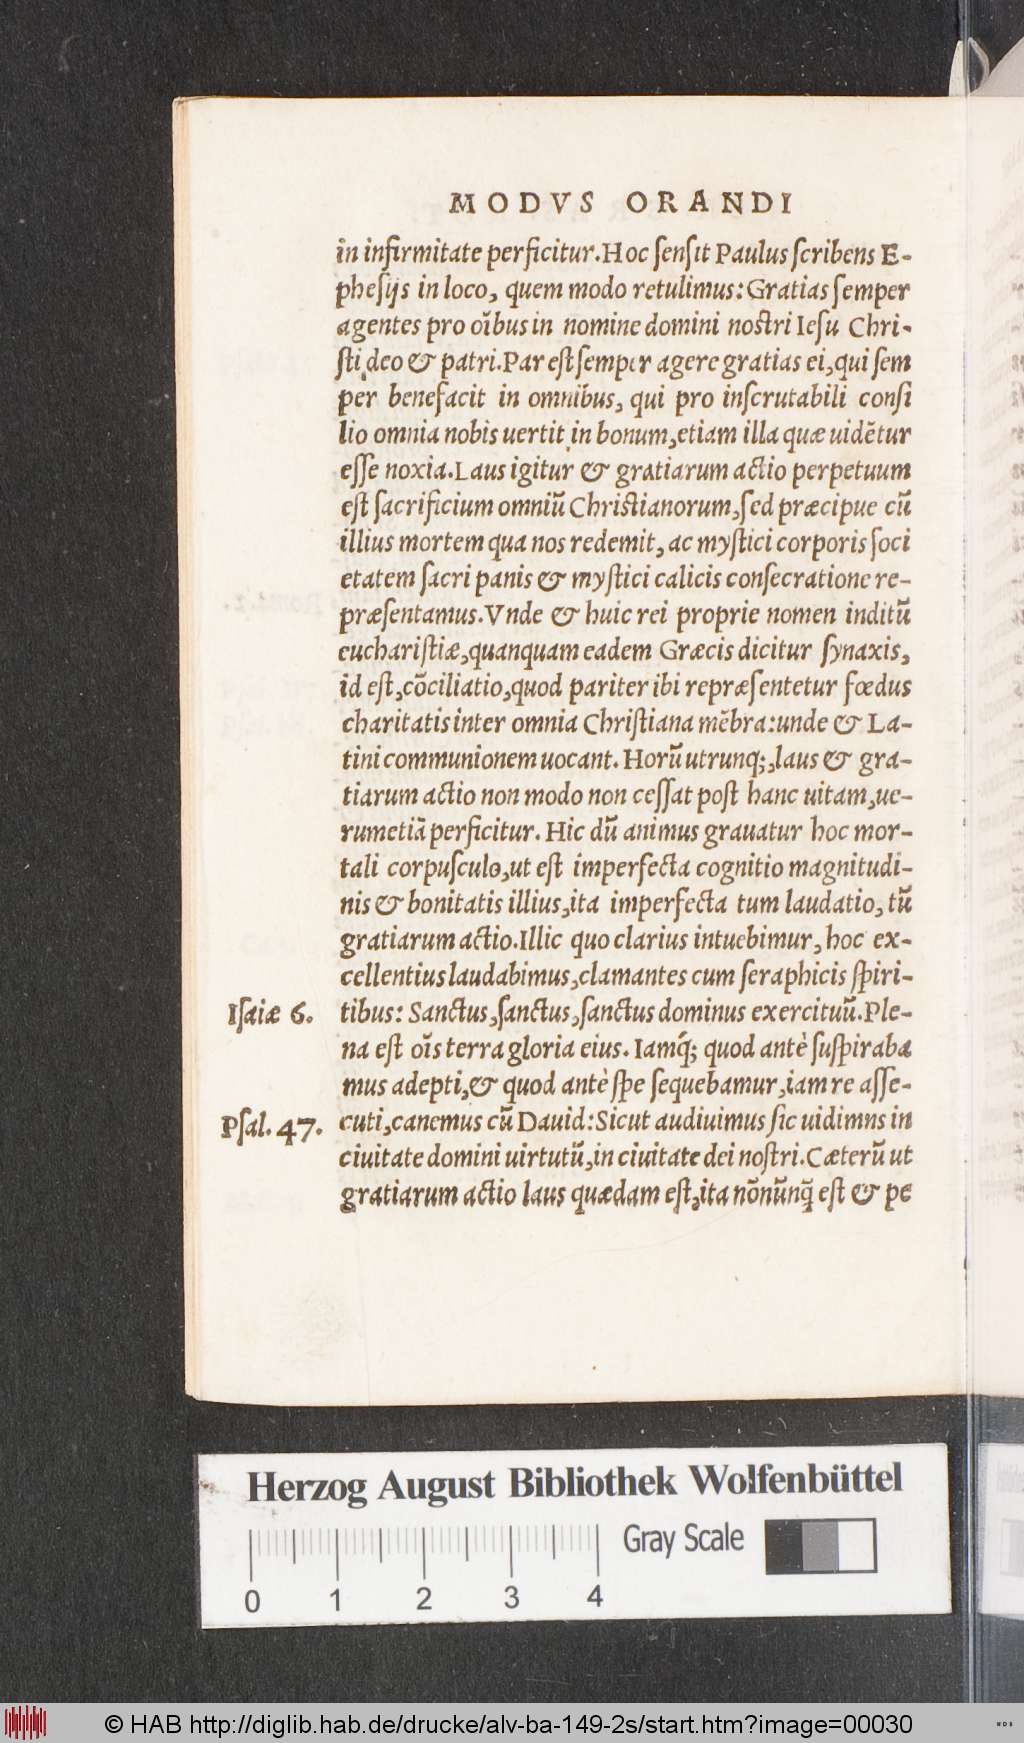 MODVS ORANDI
in infirmitate perficitur. Hoc sensit Paulus scribens E-
phesijs in loco, quem modo retulimus: Gratias semper
agentes pro oĩbus in nomine domini nostri Iesu Chri-
sti deo & patri. Par est semper agere gratias ei, qui sem
per benefacit in omnibus, qui pro inscrutabili consi
lio omnia nobis uertit in bonum, etiam illa quæ uidẽtur
esse noxia. Laus igitur & gratiarum actio perpetuum
est sacrificium omniũ Christianorum, sed præcipue cũ
illius mortem qua nos redemit, ac mystici corporis soci
etatem sacri panis & mystici calicis consecratione re-
præsentamus. Vnde & huic rei proprie nomen inditũ
eucharistiæ, quanquam eadem Græcis dicitur synaxis,
id est, cõciliatio, quod pariter ibi repræsentetur fœdus
charitatis inter omnia Christiana mẽbra: unde & La-
tini communionem uocant. Horũ utrunq;, laus & gra-
tiarum actio non modo non cessat post hanc uitam, ue-
rumetiã perficitur. Hic dũ animus grauatur hoc mor-
tali corpusculo, ut est imperfecta cognitio magnitudi-
nis & bonitatis illius, ita imperfecta tum laudatio, tũ
gratiarum actio. Illic quo clarius intuebimur, hoc ex-
cellentius laudabimus, clamantes cum seraphicis spiri-
Isaiæ 6. tibus: Sanctus, sanctus, sanctus dominus exercituũ. Ple-
na est oĩs terra gloria eius. Iamq́; quod antè suspiraba
mus adepti, & quod antè spe sequebamur, iam re asse-
Psal. 47. cuti, canemus cũ Dauid: Sicut audiuimus sic uidimns in
ciuitate domini uirtutũ, in ciuitate dei nostri. Cæterũ ut
gratiarum actio laus quædam est, ita nõnũnq̃ est & pe
Herzog August Bibliothek Wolfenbüttel
Gray Scale
0 1 2 3 4
© HAB http://diglib.hab.de/drucke/alv-ba-149-2s/start.htm?image=00030